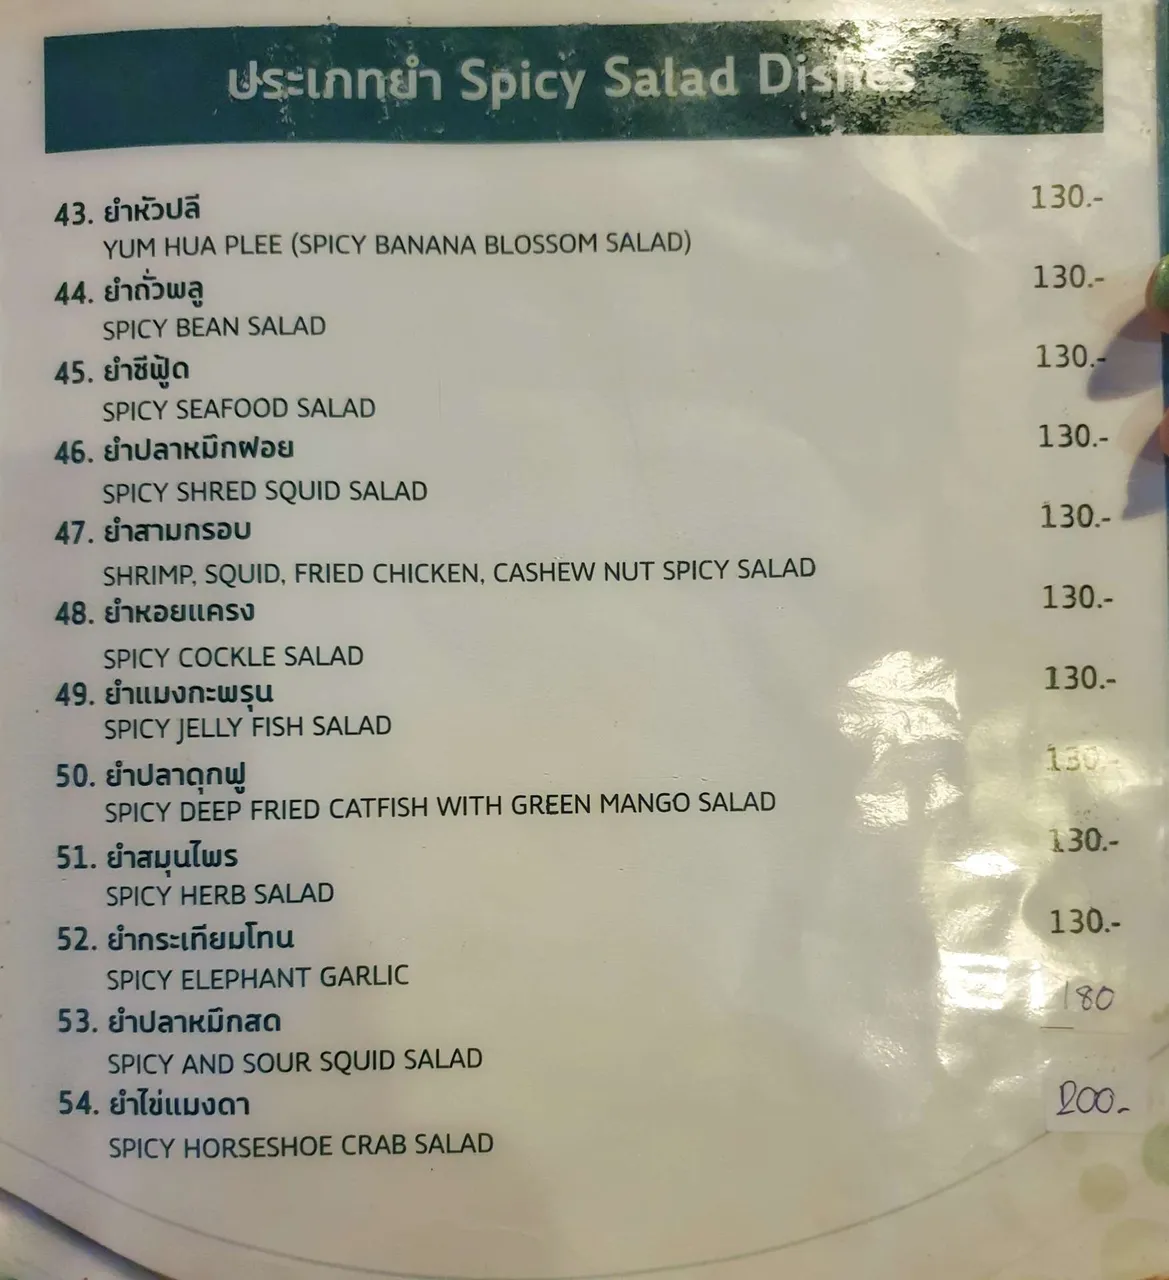 ประเภทยำ Spicy Salad Dishes
43. ยำหัวปลี 130.-
YUM HUA PLEE (SPICY BANANA BLOSSOM SALAD)
44. ยำถั่วพลู 130.-
SPICY BEAN SALAD
45. ยำซีฟู้ด 130.-
SPICY SEAFOOD SALAD
46. ยำปลาหมึกฝอย 130.-
SPICY SHRED SQUID SALAD
47. ยำสามกรอบ 130.-
SHRIMP, SQUID, FRIED CHICKEN, CASHEW NUT SPICY SALAD
48. ยำหอยแครง 130.-
SPICY COCKLE SALAD
49. ยำแมงกะพรุน 130.-
SPICY JELLY FISH SALAD
50. ยำปลาดุกฟู 130.-
SPICY DEEP FRIED CATFISH WITH GREEN MANGO SALAD
51. ยำสมุนไพร 130.-
SPICY HERB SALAD
52. ยำกระเทียมโทน 130.-
SPICY ELEPHANT GARLIC
53. ยำปลาหมึกสด 180
SPICY AND SOUR SQUID SALAD
54. ยำไข่แมงดา 200.-
SPICY HORSESHOE CRAB SALAD